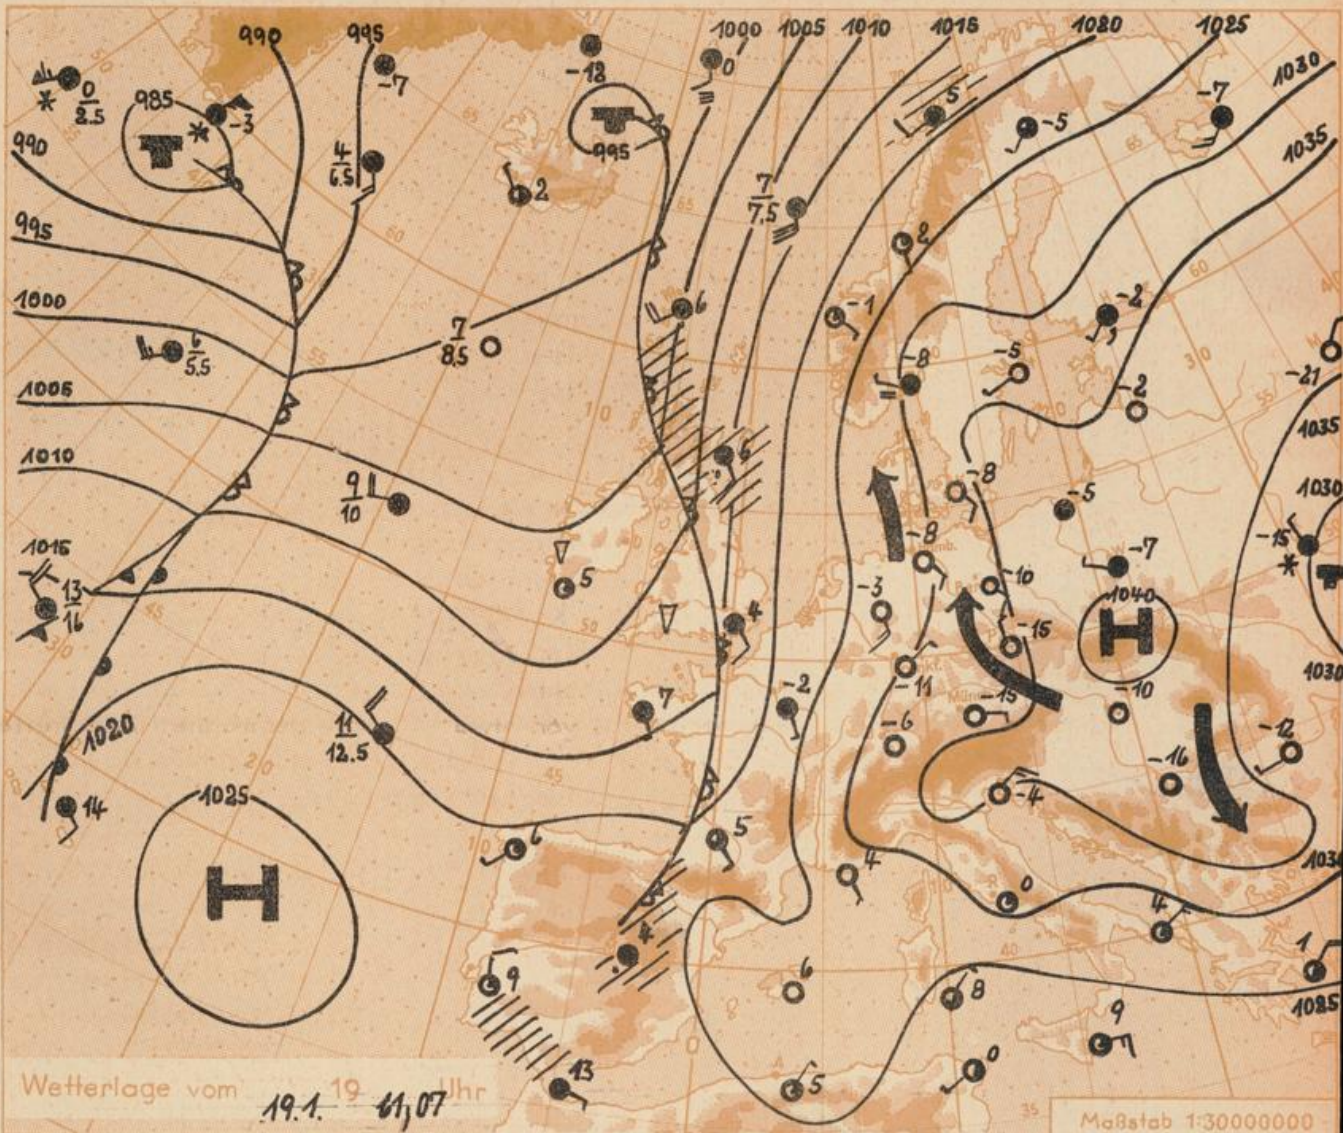 990 995 1000 1005 1010 1015 1020 1025
0
2.5
985
-3
-7
-12
0
5
-5
-7
1030
990
4
6.5
995
2
7
7.5
1035
995
2
1000
6
5.5
7
8.5
6
-1
-8
-5
-2
-2
-21
1005
1035
1010
9
10
6
-8
-5
1030
1015
13
16
5
-8
-10
-7
-15
-3
4
-15
1040
H
-11
-15
-10
1030
1020
11
12.5
7
-2
-6
-16
-12
14
1025
H
6
5
-4
4
0
4
1030
9
4
6
8
1
1025
13
5
0
9
Wetterlage vom 19 Uhr
19.1. 61, 07
Maßstab 1:30000000